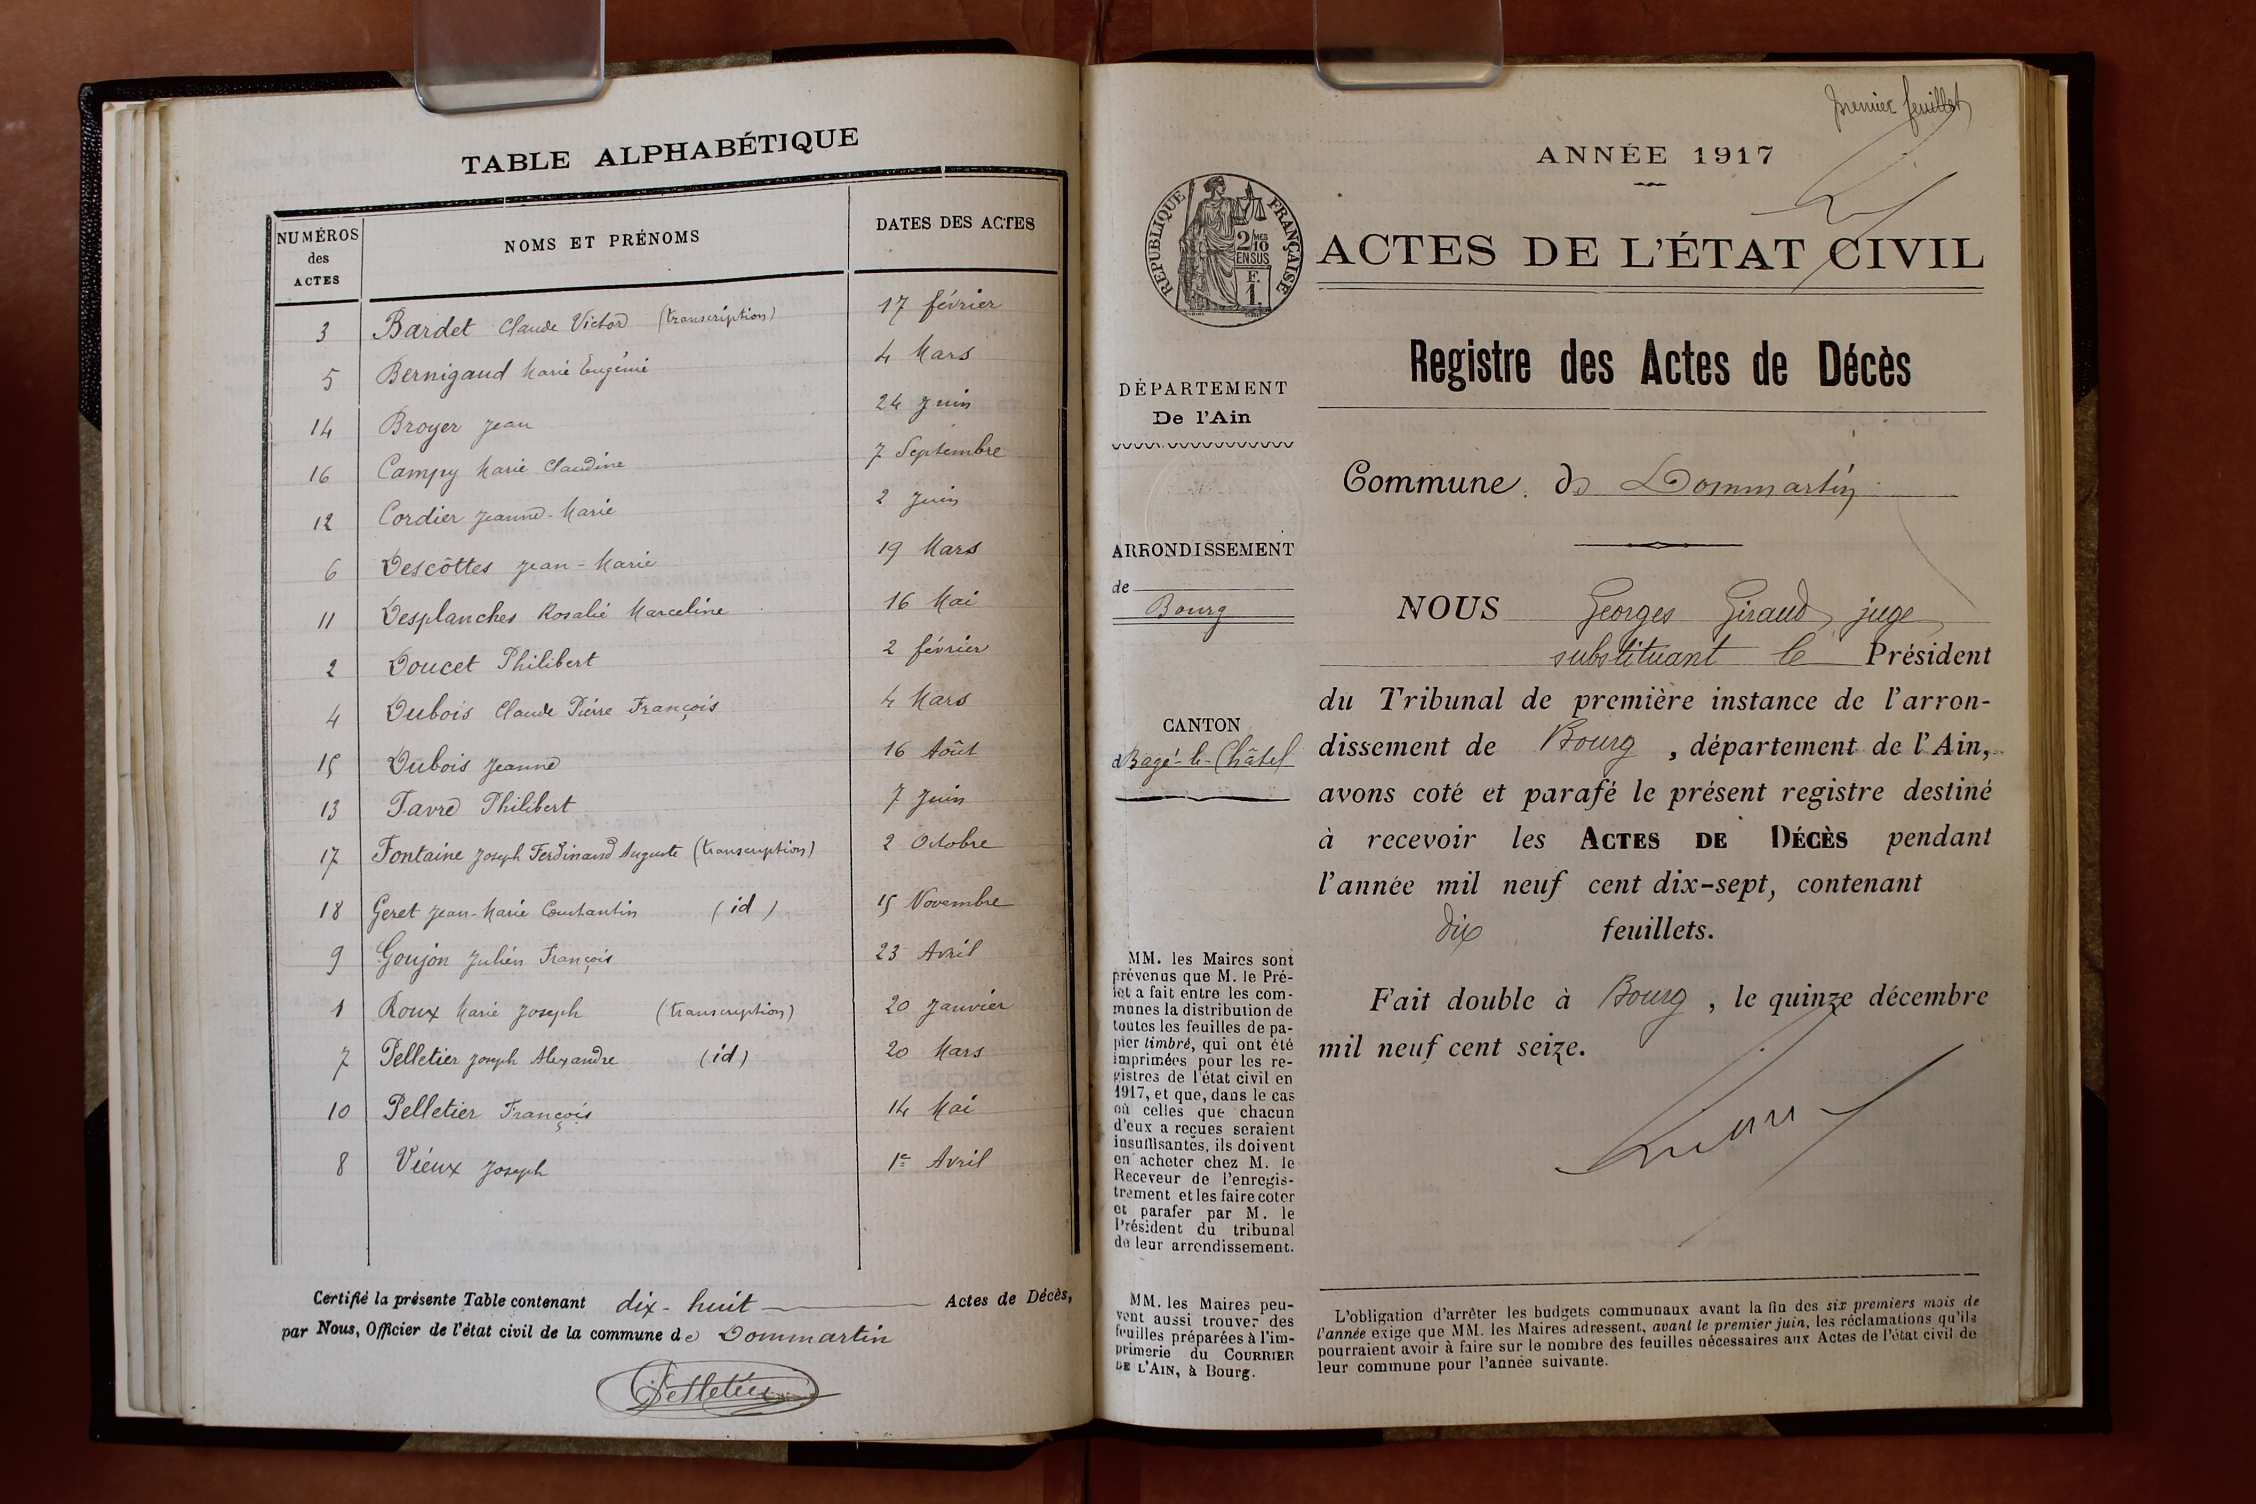 TABLE ALPHABÉTIQUE
NUMÉROS des ACTES
NOMS ET PRÉNOMS
DATES DES ACTES
3 Bardet Claude Victor (transcription) 17 février
5 Bernigaud Marie Eugénie 4 Mars
14 Broyer Jean 24 Juin
16 Campy Marie Claudine 7 Septembre
12 Cordier Jeanne-Marie 2 Juin
6 Descôttes Jean-Marie 19 Mars
11 Desplanches Rosalie Marceline 16 Mai
2 Doucet Philibert 2 février
4 Dubois Claude Pierre François 4 Mars
15 Dubois Jeanne 16 Août
13 Favre Philibert 7 Juin
17 Fontaine Joseph Ferdinand Auguste (transcription) 2 Octobre
18 Geret Jean-Marie Constantin (id) 15 Novembre
9 Goujon Julien François 23 Avril
1 Roux Marie Joseph (transcription) 20 Janvier
7 Pelletier Joseph Alexandre (id) 20 Mars
10 Pelletier François 14 Mai
8 Vieux Joseph 1er Avril
Certifié la présente Table contenant dix-huit Actes de Décès,
par Nous, Officier de l'état civil de la commune de Dommartin
Pelletier
premier feuillet
ANNÉE 1917
RÉPUBLIQUE FRANÇAISE
2/10MES
EN SUS
F.
1.
ACTES DE L'ÉTAT CIVIL
Registre des Actes de Décès
DÉPARTEMENT
De l'Ain
Commune de Dommartin
ARRONDISSEMENT
de
Bourg
CANTON
d Bagé-le-Châtel
NOUS Georges Giraud, juge
substituant le Président
du Tribunal de première instance de l'arron-
dissement de Bourg, département de l'Ain,
avons coté et parafé le présent registre destiné
à recevoir les ACTES DE DÉCÈS pendant
l'année mil neuf cent dix-sept, contenant
dix feuillets.
Fait double à Bourg, le quinze décembre
mil neuf cent seize.
MM. les Maires sont
prévenus que M. le Pré-
fet a fait entre les com-
munes la distribution de
toutes les feuilles de pa-
pier timbré, qui ont été
imprimées pour les re-
gistres de l'état civil en
1917, et que, dans le cas
où celles que chacun
d'eux a reçues seraient
insuffisantes, ils doivent
en acheter chez M. le
Receveur de l'enregis-
trement et les faire coter
et parafer par M. le
Président du tribunal
de leur arrondissement.
MM. les Maires peu-
vent aussi trouver des
feuilles préparées à l'im-
primerie du COURRIER
DE L'AIN, à Bourg.
L'obligation d'arrêter les budgets communaux avant la fin des six premiers mois de
l'année exige que MM. les Maires adressent, avant le premier juin, les réclamations qu'ils
pourraient avoir à faire sur le nombre des feuilles nécessaires aux Actes de l'état civil de
leur commune pour l'année suivante.